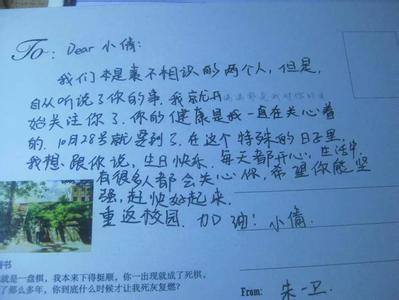 To: Dear 小倩:
我们本是素不相识的两个人,但是,
自从听说了你的事,我就开
始关注了你.你的健康是我一直在关心着
的.10月28号就要到了.在这个特殊的日子里,
我想、跟你说,生日快乐,每天都开心,生活中,
有很多人都会关心你,希望你能坚
强,赶快好起来.
重返校园.加油!小倩.
就是一盘棋,我本来下得挺顺,你一出现就成了死棋,
了那么多年,你到底什么时候才让我死灰复燃?
From: 朱一卫